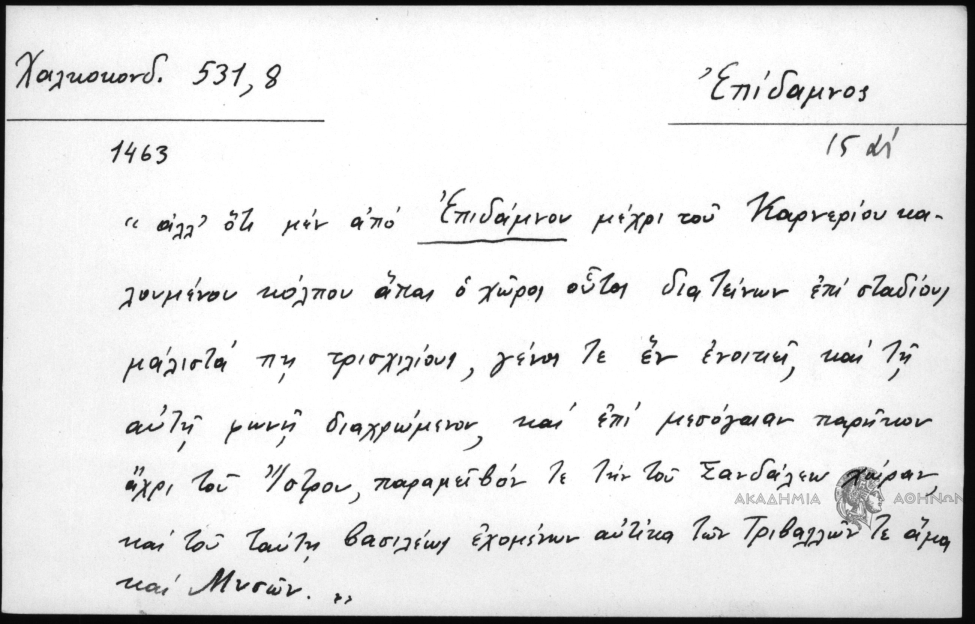 Χαλκοκονδ. 531,8
Ἐπίδαμνος
1463
15
“ ἀλλ' ὅτι μὲν ἀπὸ Ἐπιδάμνου μέχρι τοῦ Καρνερίου κα-
λουμένου κόλπου ἅπας ὁ χῶρος οὗτος διατείνων ἐπὶ σταδίους
μάλιστά πῃ τρισχιλίους, γένος τε ἓν ἐνοικεῖ, καὶ τῇ
αὐτῇ φωνῇ διαχρώμενον, καὶ ἐπὶ μεσόγαιαν παρῆκον
ἄχρι τοῦ Ἴστρου, παραμεῖβόν τε τὴν τοῦ Σανδάλεω χώραν,
ΑΚΑΔΗΜΙΑ ΑΘΗΝΩΝ
καὶ τοῦ ταύτῃ βασιλέως ἐχομένων αὐτίκα τῶν Τριβαλλῶν τε ἅμα
καὶ Μυσῶν. ”